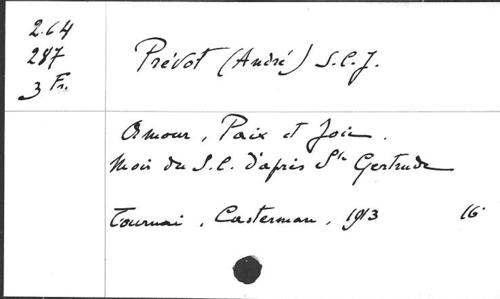 2.64
287
3 Fr.
Prévot (André) S.C.J.
Amour, Paix et Joie.
Mois du S.C. d'après Ste Gertrude
Tournai, Casterman, 1913 16°